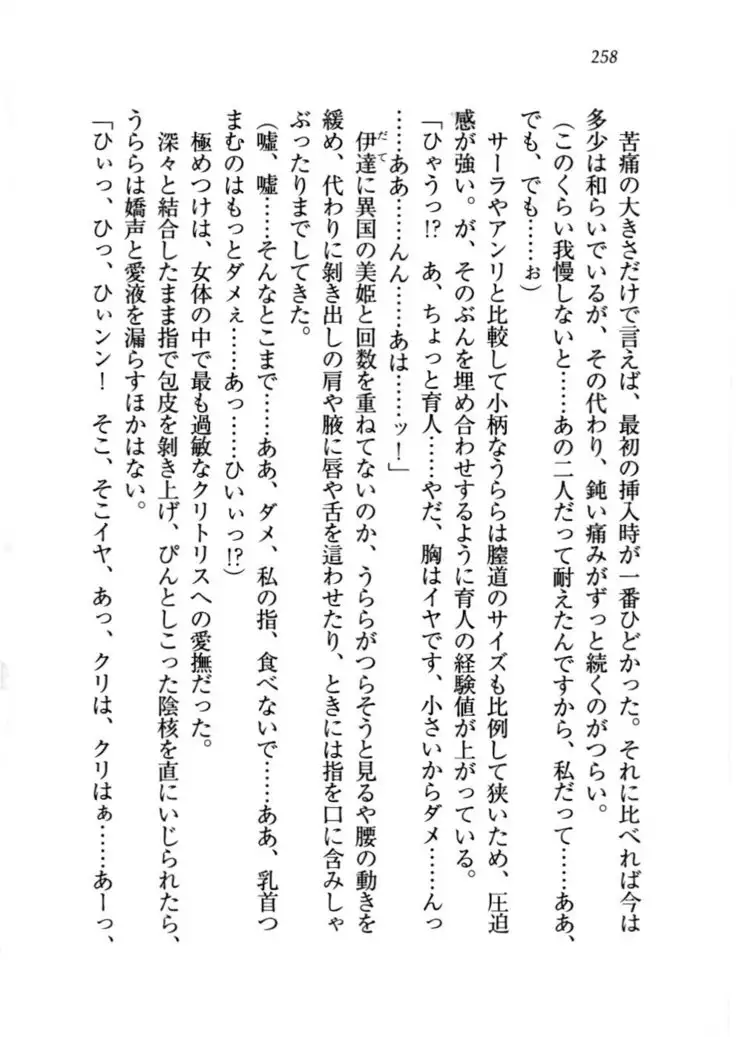 258
苦痛の大きさだけで言えば、最初の挿入時が一番ひどかった。それに比べれば今は
多少は和らいでいるが、その代わり、鈍い痛みがずっと続くのがつらい。
(このくらい我慢しないと……あの二人だって耐えたんですから、私だって……ああ、
でも、でも……ぉ)
サーラやアンリと比較して小柄なうららは膣道のサイズも比例して狭いため、圧迫
感が強い。が、そのぶんを埋め合わせするように育人の経験値が上がっている。
「ひゃうっ!? あ、ちょっと育人……やだ、胸はイヤです、小さいからダメ……んっ
……ああ……んん……あは……ッ!」
伊達に異国の美姫と回数を重ねてないのか、うららがつらそうと見るや腰の動きを
緩め、代わりに剝き出しの肩や腋に唇や舌を這わせたり、ときには指を口に含みしゃ
ぶったりまでしてきた。
(嘘、嘘……そんなとこまで……ああ、ダメ、私の指、食べないで……ああ、乳首つ
まむのはもっとダメぇ……あっ……ひいぃっ!?)
極めつけは、女体の中で最も過敏なクリトリスへの愛撫だった。
深々と結合したまま指で包皮を剝き上げ、ぴんとしこった陰核を直にいじられたら、
うららは嬌声と愛液を漏らすほかはない。
「ひぃっ、ひっ、ひぃンン! そこ、そこイヤ、あっ、クリは、クリはぁ……あーっ、